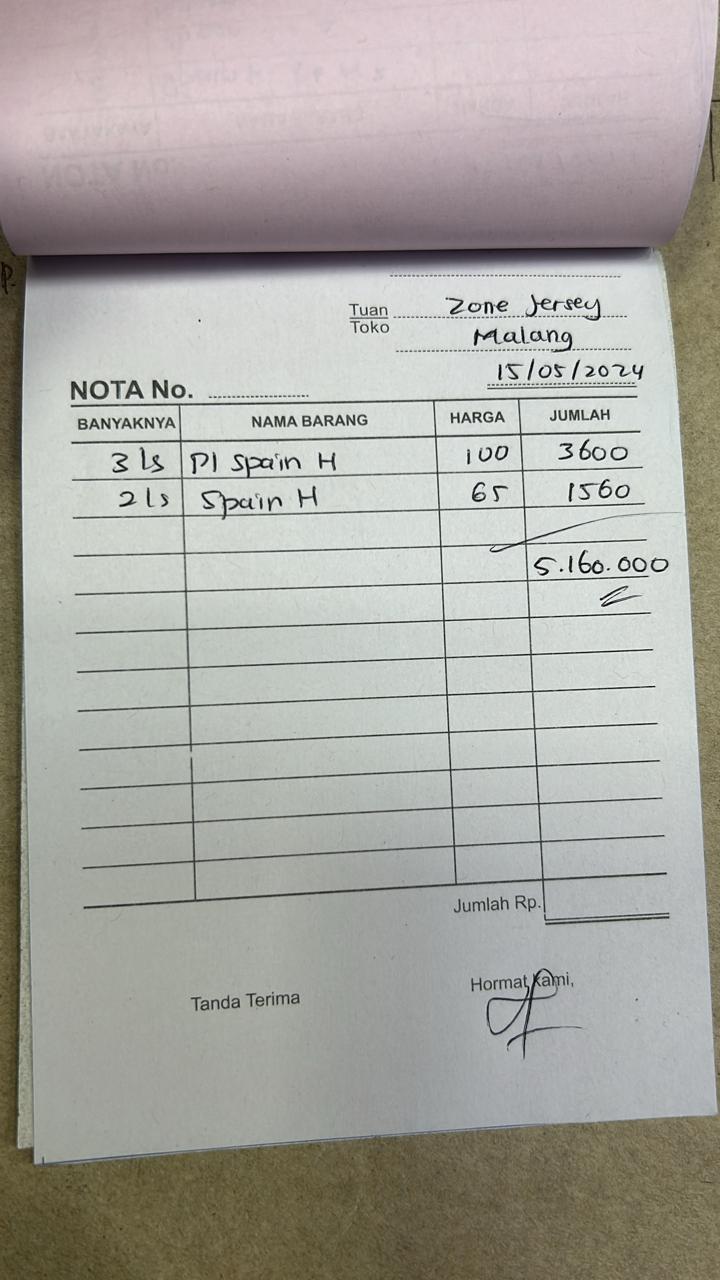 Tuan Zone Jersey
Toko Malang
15/05/2024
NOTA No.
BANYAKNYA NAMA BARANG HARGA JUMLAH
3 ls Pl Spain H 100 3600
2 ls Spain H 65 1560
5.160.000
Jumlah Rp.
Tanda Terima Hormat kami,